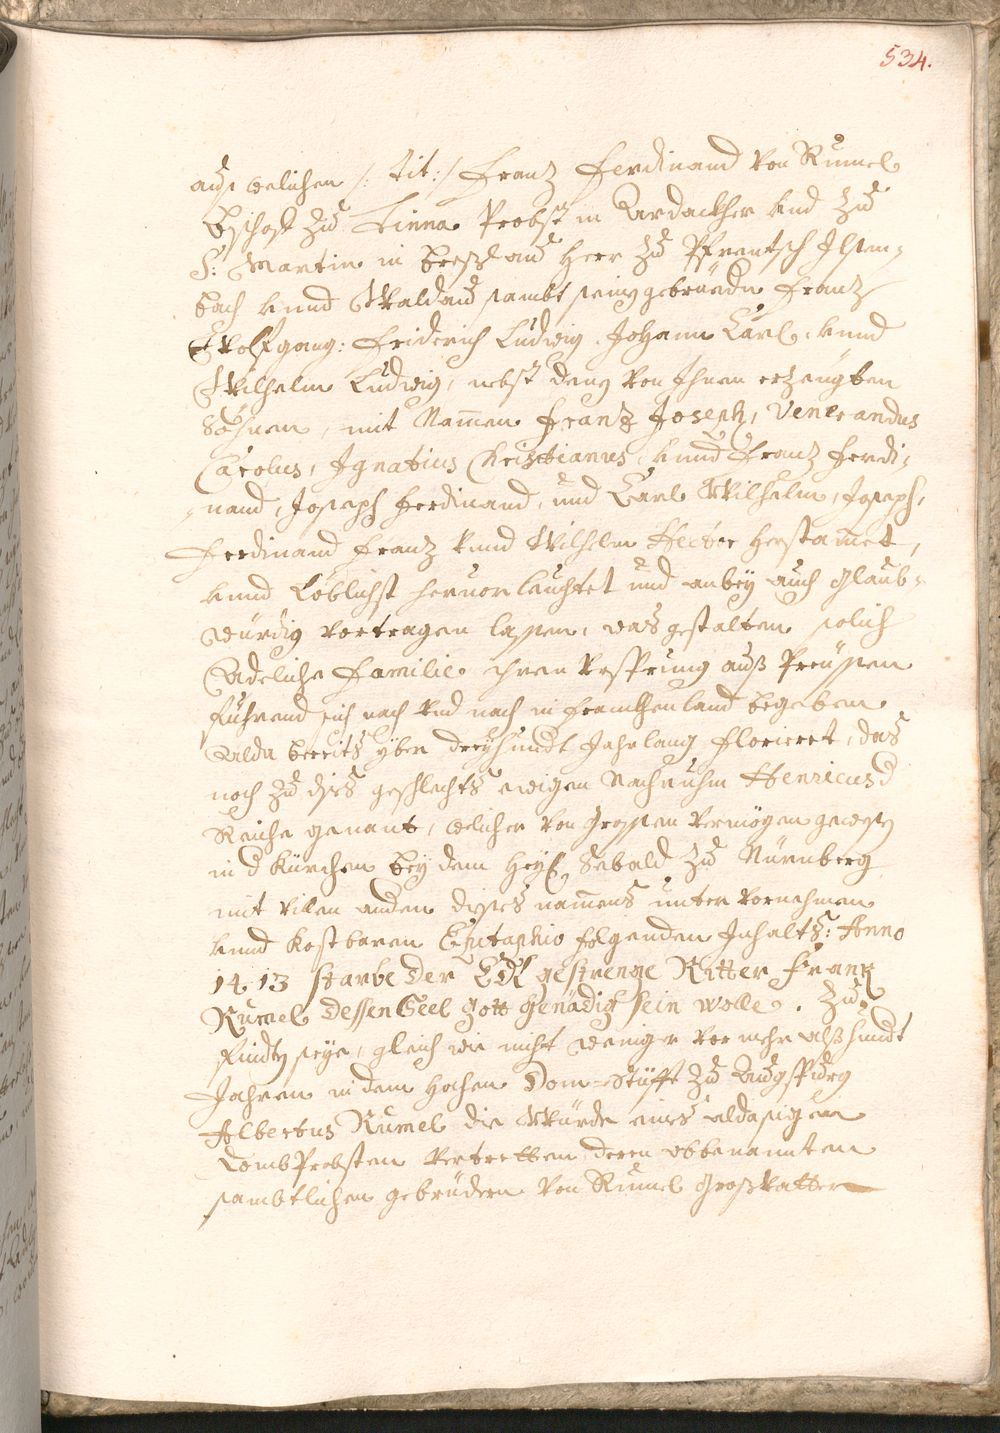 534.
auß welichen /: tit: / Franz Ferdinand von Rumel
Bischof zu Tinna Probst in Ardackher und zu
S: Martin in Herr zu Pfrentsch Ilsen-
bach unnd Waldau sambt seiny gebrüedn Franz
Wolfgang: Friderich Ludwig. Johann Carl. unnd
Wilhelm Ludwig, nebst deny von Ihnen erzeugten
Söhnen, mit Namen Frantz Joseph, Venerandus
Carolus, Ignatius Christianus, unnd Franz Ferdi-
-nand, Joseph Ferdinand, und Carl Wilhelm, Joseph,
Ferdinand Franz unnd Wilhelm Hector herstamet,
unnd Löblichst heruorleuchtet und anbey auch glaub-
würdig vortragen lassen, was gestalten solich
Adeliche Familie ihren vrsprung auß Preüssen
führend sich nach und nach in Franckhenland begeben
alda bereits yber dreyhundt Jahrlang florieret, das
noch zu dises geschlechts ewigen Nachruhm Henricus d
Reiche genant, welicher von grossen vermögen gewesen
in d Kürchen bey dem Heyl. Sebald zu Nürnberg
mit villen anden dises namens unter vornehmen
unnd kostbaren Epitaphio folgenden Inhalts: Anno
1413 starbe Der Edl gestrenge Ritter Frank
Rumel Dessen Seel Gott Genädig sein wolle. Zu
findty seye, gleich wie nicht weniger vor mehr alß hundt
Jahren in dem hochen Dom-Stüfft zu Augspurg
Albertus Rumel die Würde eines aldasigen
DombProbsten vertretten, deren obbenannten
sambtlichen gebrüdern von Rumel Großvatter